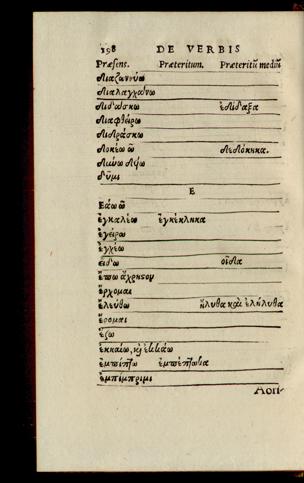 198 DE VERBIS
Præsens. Præteritum. Præteritū mediū
διαζωννύω
διαλαγχάνω
διδάσκω ἐδίδαξα
διαφθείρω
διδράσκω
δοκέω ῶ δεδόκηκα.
δύμι
E
Εάω ῶ
ἐγκαλέω ἐγκέκληκα
ἐγείρω
ἐγχέω
εἴδω οἶδα
ἔπω ἄχρηστον
ἔρχομαι
ἐλεύθω ἤλυθα καὶ ἐλήλυθα
ἔρομαι
ἕζω
ἐμπίπτω ἐμπέπτωκα
ἐμπίμπριμι
Aori-